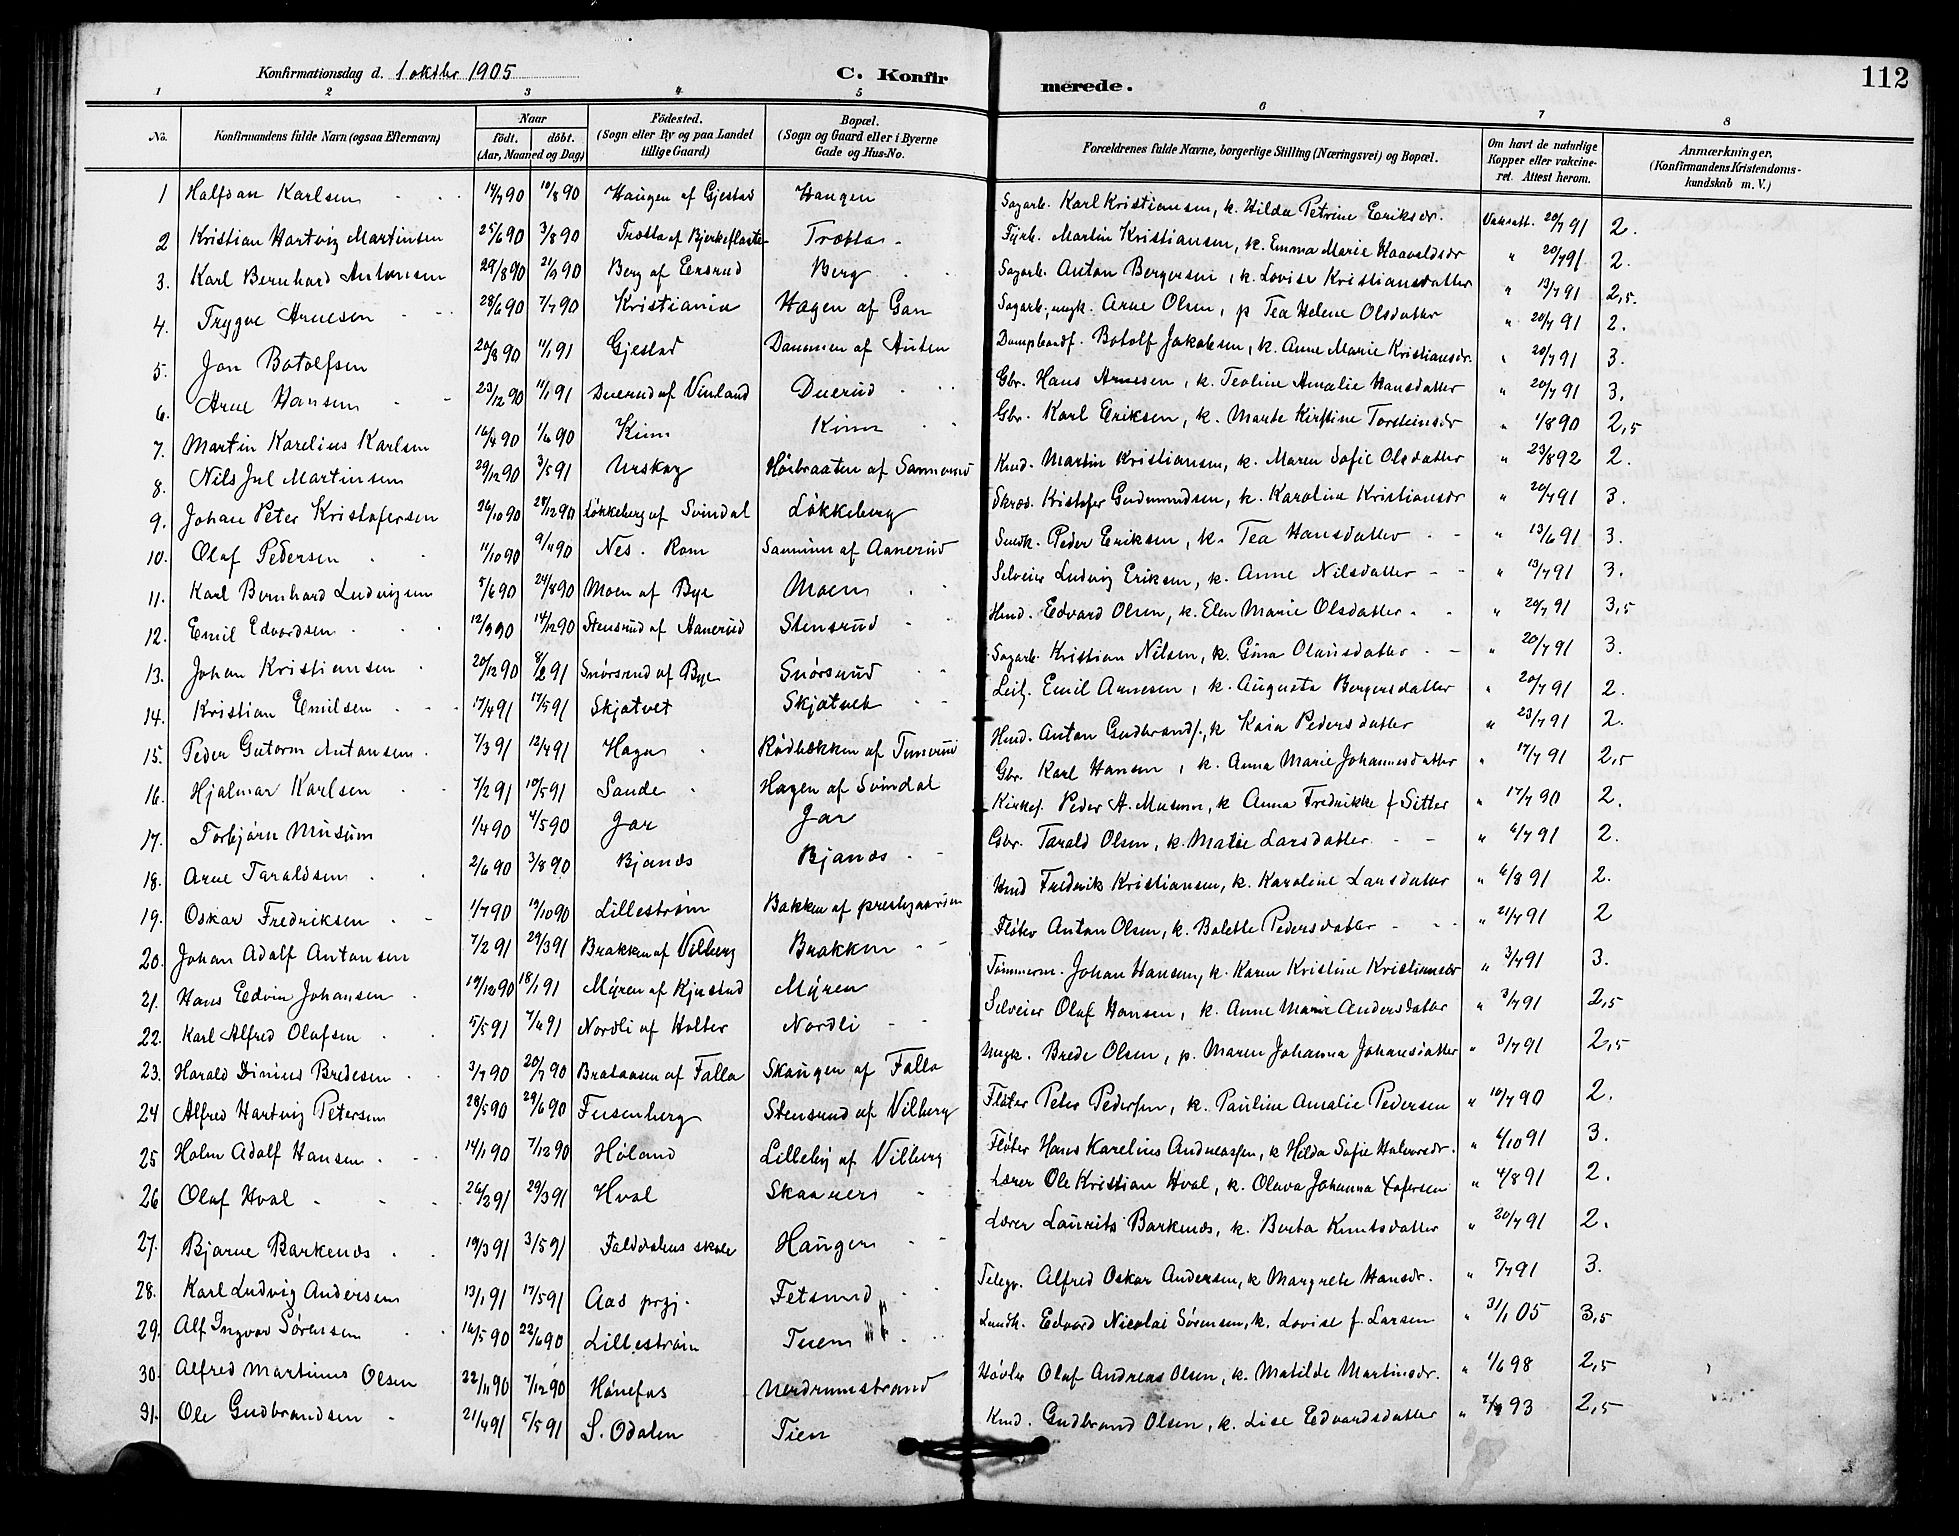 Konfirmationsdag d. 1 oktbr 1905
C. Konfirmerede.
112
1 2 3 4 5 6 7 8
No. | Konfirmandens fulde Navn (ogsaa Efternavn) | Naar født. døbt. (Aar, Maaned og Dag) | Födested. (Sogn eller By og paa Landet tillige Gaard) | Bopæl. (Sogn og Gaard eller i Byerne Gade og Hus-No. | Forældrenes fulde Navne, borgerlige Stilling (Næringsvei) og Bopæl. | Om havt de naturlige Kopper eller vakcineret. Attest herom. | Anmærkninger. (Konfirmandens Kristendomskundskab m. V.)
1 Halfdan Karlsen 14/7 90 10/8 90 Haugen af Gjestad Haugen Sagarb. Karl Kristiansen, k. Hilda Petrine Eriksdr. Vaksatt. 20/7 91 2.
2 Kristian Hartvig Martinsen 25/6 90 3/8 90 Trøtta af Bjerkeflaate Trøtta Fyrb. Martin Kristiansen, k. Emma Marie Haavaldsdr " 20/7 91 2.
3. Karl Bernhard Antonsen 29/8 90 21/9 90 Berg af Eersrud Berg Sagarb. Anton Bergersen, k. Lovise Kristiansdatter " 13/7 91 2,5.
4. Trygve Arnesen 28/6 90 7/7 90 Kristiania Hagen af Gan Sagarb., ungk. Arne Olsen, p Tea Helene Olsdatter " 20/7 91 2.
5. Jon Botolfsen 20/8 90 11/1 91 Gjestad Dammen af Austen Dampbaadf. Botolf Jakobsen, k. Anne Marie Kristiansdr. " 20/7 91 3.
6. Arne Hansen 23/12 90 11/1 91 Duerud af Vinland Duerud Gbr. Hans Arnesen, k. Teoline Amalie Hansdatter " 20/7 91 3.
7. Martin Karelius Karlsen 16/4 90 1/6 90 Kinn Kinn Gbr. Karl Eriksen, k. Marte Kirstine Torsteinsdr " 1/8 90 2,5
8. Nils Jul Martinsen 29/12 90 3/5 91 Urskog Hørbraaten af Sannerud Hmd. Martin Kristiansen, k. Maren Sofie Olsdatter " 23/8 92 2.
9. Johan Peter Kristofersen 26/10 90 28/12 90 Løkkeberg af Svindal Løkkeberg Skræd. Kristofer Gudmundsen, k. Karoline Kristiansdr " 20/7 91 3.
10. Olaf Pedersen 11/10 90 9/11 90 Nes. Rom Sannum af Aanerud Smedk. Peder Eriksen, k. Tea Hansdatter " 13/6 91 3.
11. Karl Bernhard Ludvigsen 5/6 90 24/8 90 Moen af Bye Moen Selveier Ludvig Eriksen, k. Anne Nilsdatter " 13/7 91 3.
12. Emil Edvardsen 12/9 90 14/12 90 Stensrud af Hanerud Stensrud Hmd. Edvard Olsen, k. Elen Marie Olsdatter " 20/7 91 3,5
13. Johan Kristiansen 20/12 90 8/2 91 Snørsrud af Bye Snørsrud Sagarb. Kristian Nilsen, k. Gina Olausdatter " 20/7 91 3.
14. Kristian Emilsen 17/4 91 17/5 91 Skjatvet Skjatvet Leil. Emil Arnesen, k. Augusta Bergersdatter " 20/7 91 2.
15. Peder Gutorm Antonsen 7/3 91 12/4 91 Haga Rødbækken af Tunerud Hmd. Anton Gudbrands., k Kaia Pedersdatter " 23/7 91 2.
16. Hjalmar Karlsen 7/2 91 10/5 91 Sande Hagen af Svindal Gbr. Karl Hansen, k. Anna Marie Johannesdatter " 17/7 91 2,5
17. Torbjørn Musum 1/4 90 4/5 90 Jar Jar Kirkes. Peder A. Musum, k. Anna Fredrikke f Sitter " 17/7 90 2.
18. Arne Taraldsen 2/6 90 3/8 90 Bjanæs Bjanæs Gbr. Tarald Olsen, k. Matie Larsdatter " 6/7 91 2.
19. Oskar Fredriksen 1/7 90 19/10 90 Lillestrøm Bakken af prestegaarden Hmd Frederik Kristiansen, k. Karoline Larsdatter " 6/8 91 2.
20. Johan Adolf Antonsen 7/2 91 29/3 91 Brakken af Vilberg Brakken Fløter Anton Olsen, k. Bolette Pedersdatter " 21/7 91 2
21. Hans Edvin Johansen 19/12 90 18/1 91 Myren af Kjustad Myren Tømmerm. Johan Hansen, k. Karen Kristine Kristiansdr " 3/7 91 3.
22. Karl Alfred Olafsen 5/5 91 7/4 91 Nordli af Holter Nordli Selveier Olaf Hansen, k. Anne Marie Andersdatter " 3/7 91 2,5
23. Harald Dinius Bredesen 3/7 90 20/7 90 Brataasen af Falla Skaugen af Falla Ungk. Brede Olsen, p. Maren Johanna Johansdatter " 3/7 91 2,5
24 Alfred Hartvig Petersen 28/5 90 29/6 90 Fusenberg Stensrud af Vilberg Fløter Peter Pedersen, k. Pauline Amalie Pedersen " 10/7 90 2.
25 Holm Adolf Hansen 14/1 90 7/12 90 Høland Lilleby af Vilberg Fløter Hans Karelius Andreassen, k Hilda Sofie Halvorsdr. " 6/10 91 3.
26 Olaf Hval 26/2 91 29/3 91 Hval Skaaren Lærer Ole Kristian Hval, k. Olava Johanna Tofersen " 4/8 91 2.
27. Bjarne Barkenæs 19/3 91 3/5 91 Falldalens skole Haugen Lærer Laurits Barkenæs, k. Berta Knutsdatter " 20/7 91 2.
28. Karl Ludvig Andersen 13/1 91 17/5 91 Aas prgj. Fetsund Telegr. Alfred Oskar Andersen, k Margrete Hansdr. " 5/7 91 3.
29. Alf Ingvar Sørensen 16/5 90 22/6 90 Lillestrøm Tuen Landh. Edvard Nicolai Sørensen, k. Lovise f. Larsen " 31/1 05 3,5
30. Alfred Martinus Olsen 22/11 90 7/12 90 Hønefos Nerdrumstrand Høvler Olaf Andreas Olsen, k. Matilde Martinsdr. " 1/6 98 2,5
31. Ole Gudbrandsen 21/4 91 5/5 91 S. Odalen Tien Hmd. Gudbrand Olsen, k. Lise Edvardsdatter " 2/7 93 2,5